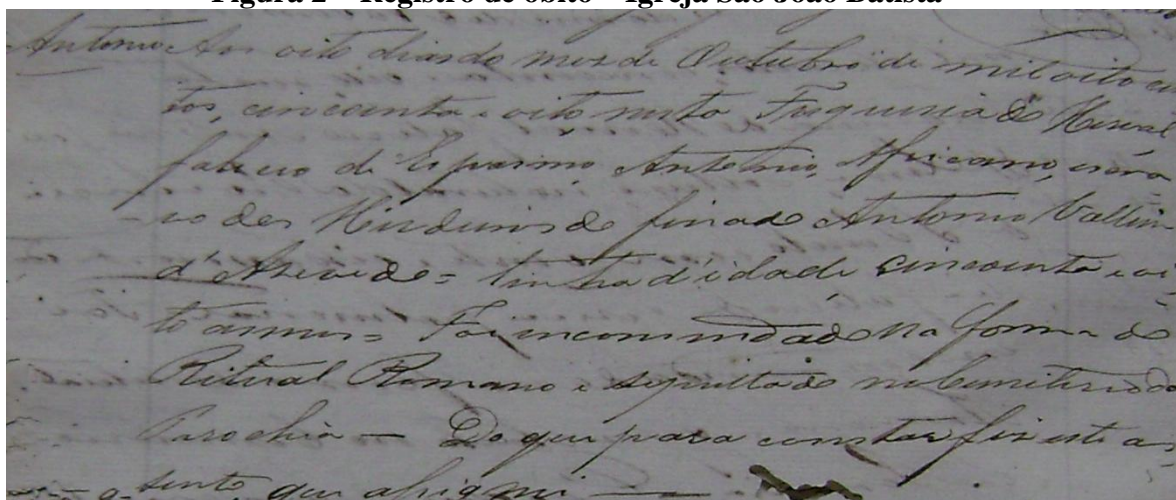 Figura 2 – Registro de óbito – Igreja São João Batista
Antonio Aos oito dias do mez de Outubro de mil oito cen
tos, cincoenta e oito nesta Freguesia de
faleceo de Espasimo Antonio, Africano, escra
vo dos Herdeiros do finado Antonio
d'Asevedo = tinha d'idade cincoenta e oi
to annos = Foi incommendado na forma do
Ritual Romano e sepultado no Cemiterio da
Parochia — Do que para constar fiz este as
sento que asignei —